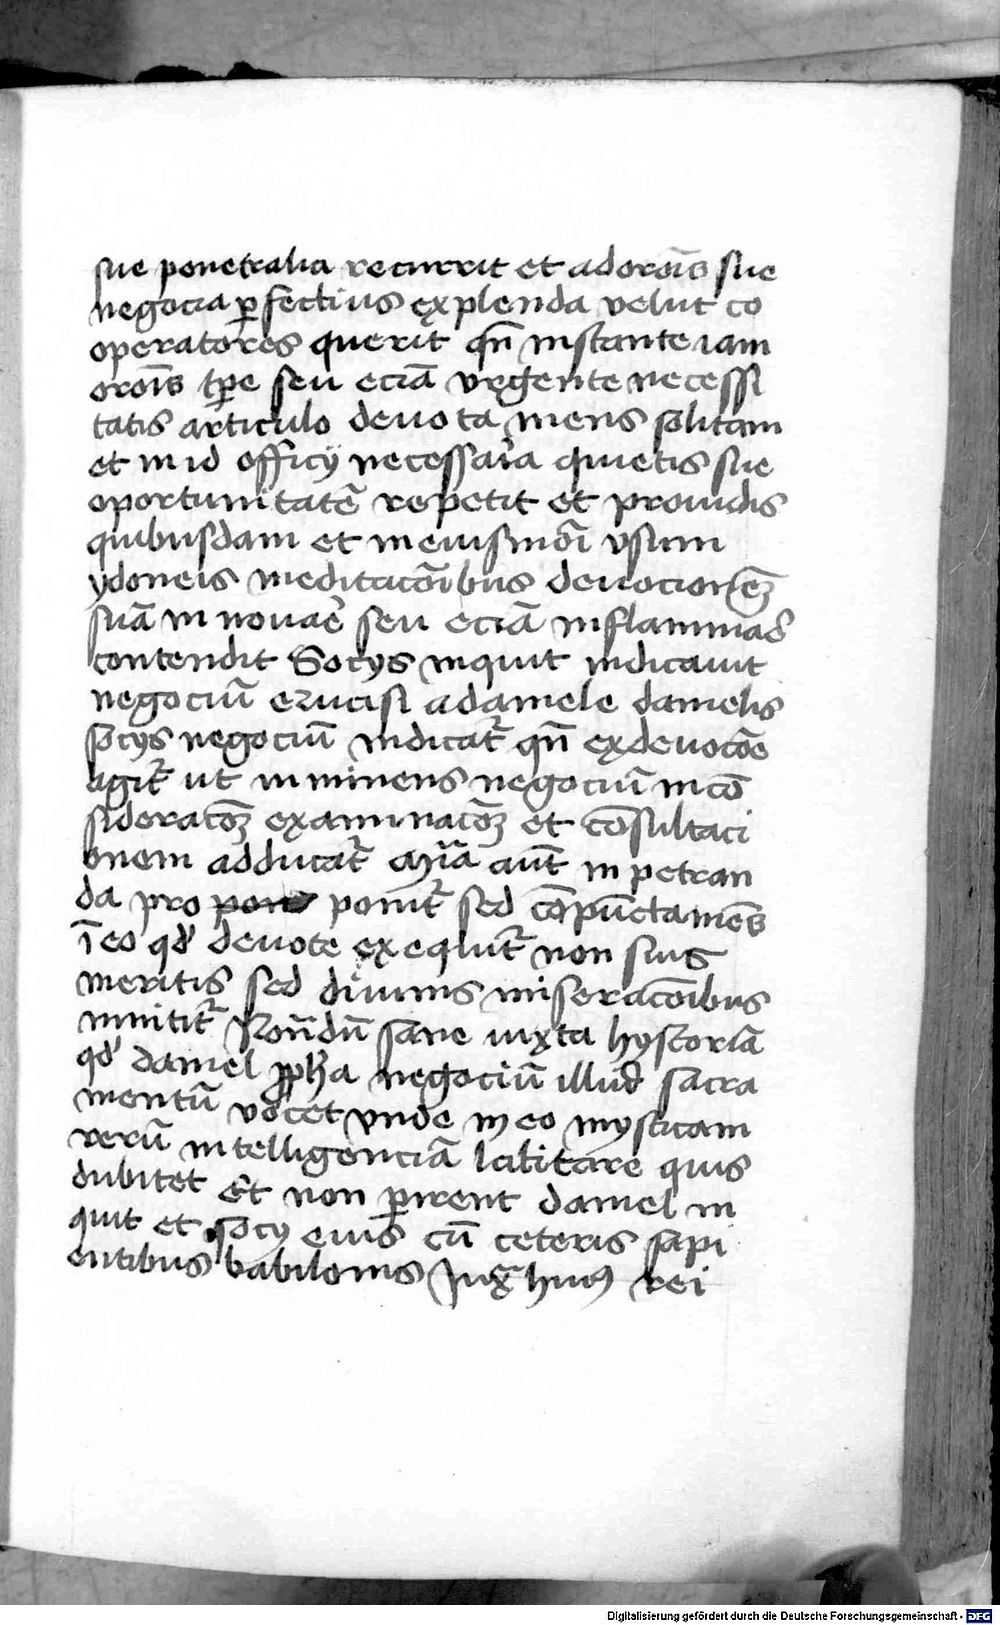 sue penetralia recurrit et ad orōis sue
negocia ꝑfectius explenda velut co
operatores querit qn̄ instante iam
orōis tꝑe seu eciā vrgente necessi
tatis articulo deuota mens solitam
et in id officij necessaria quietis sue
oportunitatē repetit et prouidis
quibusdam et in eiusmōi vsum
ydoneis meditacōibus deuocionē
suā innouare seu eciā inflammare
contendit Socijs inquit indicauit
negociū
a daniele danielis
socijs negociū indicatr̄ qn̄ ex deuocōe
agitr̄ ut inminens negociū in cō
sideracōꝫ examinacōꝫ et cōsultaci
onem adducatr̄ mīa aūt inpetran
da pro ponitr̄ sed cōpūcta mens
ī eo qd' deuote exequitr̄ non suis
meritis sed diuinis miseracōibus
innititr̄ Notādū sane iuxta hystoriā
qd' daniel ꝓpha negociū illud sacra
mentū vocet vnde in eo mysticam
verū intelligenciā latitare quis
dubitet Et non ꝑirent daniel in
quit et socij eius cū ceteris sapi
entibus babilonis Iux̄ huiꝰ rei
Digitalisierung gefördert durch die Deutsche Forschungsgemeinschaft - DFG